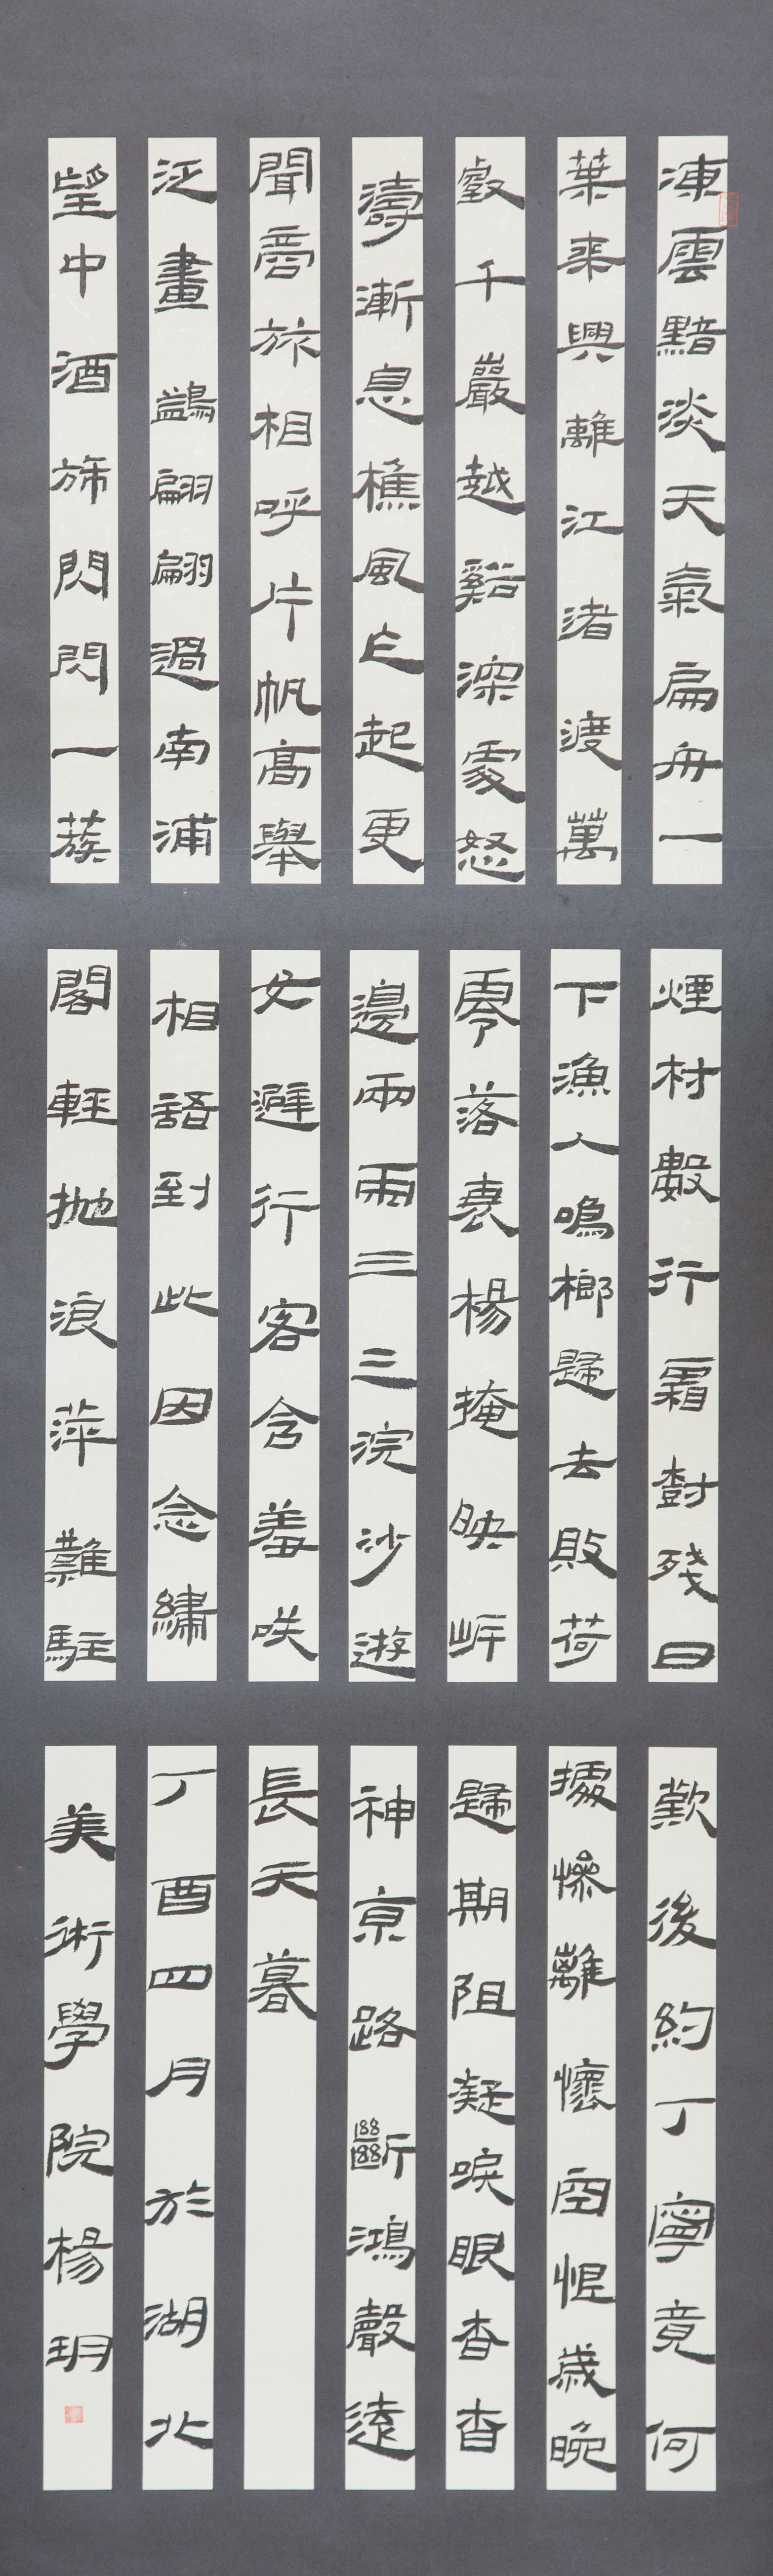 凍雲黯淡天氣扁舟一
葉乘興離江渚渡萬
壑千巖越谿深處怒
濤漸息樵風乍起更
聞商旅相呼片帆高舉
泛畫鷁翩翩過南浦
望中酒旆閃閃一簇
煙村數行霜樹殘日
下漁人鳴榔歸去敗荷
零落衰楊掩映岸
邊兩兩三三浣沙遊
女避行客含羞咲
相語到此因念繡
閣輕拋浪萍難駐
歎後約丁寧竟何
據慘離懷空恨歲晚
歸期阻凝淚眼杳杳
神京路斷鴻聲遠
長天暮
丁酉四月於湖北
美術學院楊玥